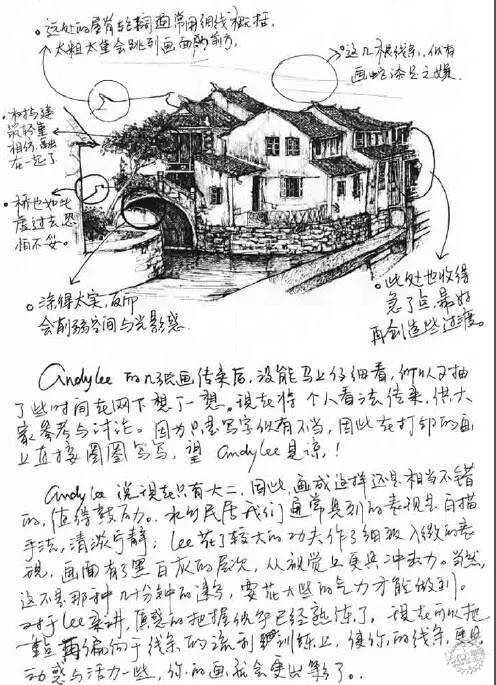 远处的屋脊轮廓通常用细线概括.
太粗太重会跳到画面的前方.
这几根线条,似有
画蛇添足之嫌.
树与建
筑轻重
相仿,融
在一起了
桥也如此
度过去恐
怕不妥。
涂得太实,反而
会削弱空间与光影感.
此处也收得
急了点,最好
再制造些过渡。
Andylee 的几张画传来后,没能马上仔细看,所以又抽
了些时间在网下想了一想。现在将个人看法传来,供大
家参考与讨论。因为只是写字似有不当,因此在打印的画
上直接圈圈写写,望 Andylee 见谅!
Andylee 说现在只有大二,因此,画成这样还是相当不错
的,值得鼓励。水乡民居我们通常见到的表现是白描
手法,清淡宁静;Lee花了较大的功夫作了细致入微的表
现,画面有了黑白灰的层次,从视觉上更具冲击力。当然,
这不是那种几十分钟的速写,要花大些的气力才能做到。
对于Lee来讲,质感的把握似乎已经熟练了,现在可以把
重点再偏向于线条的流利训练上,使你的线条,更具
动感与活力一些,你的画就会更出彩了。